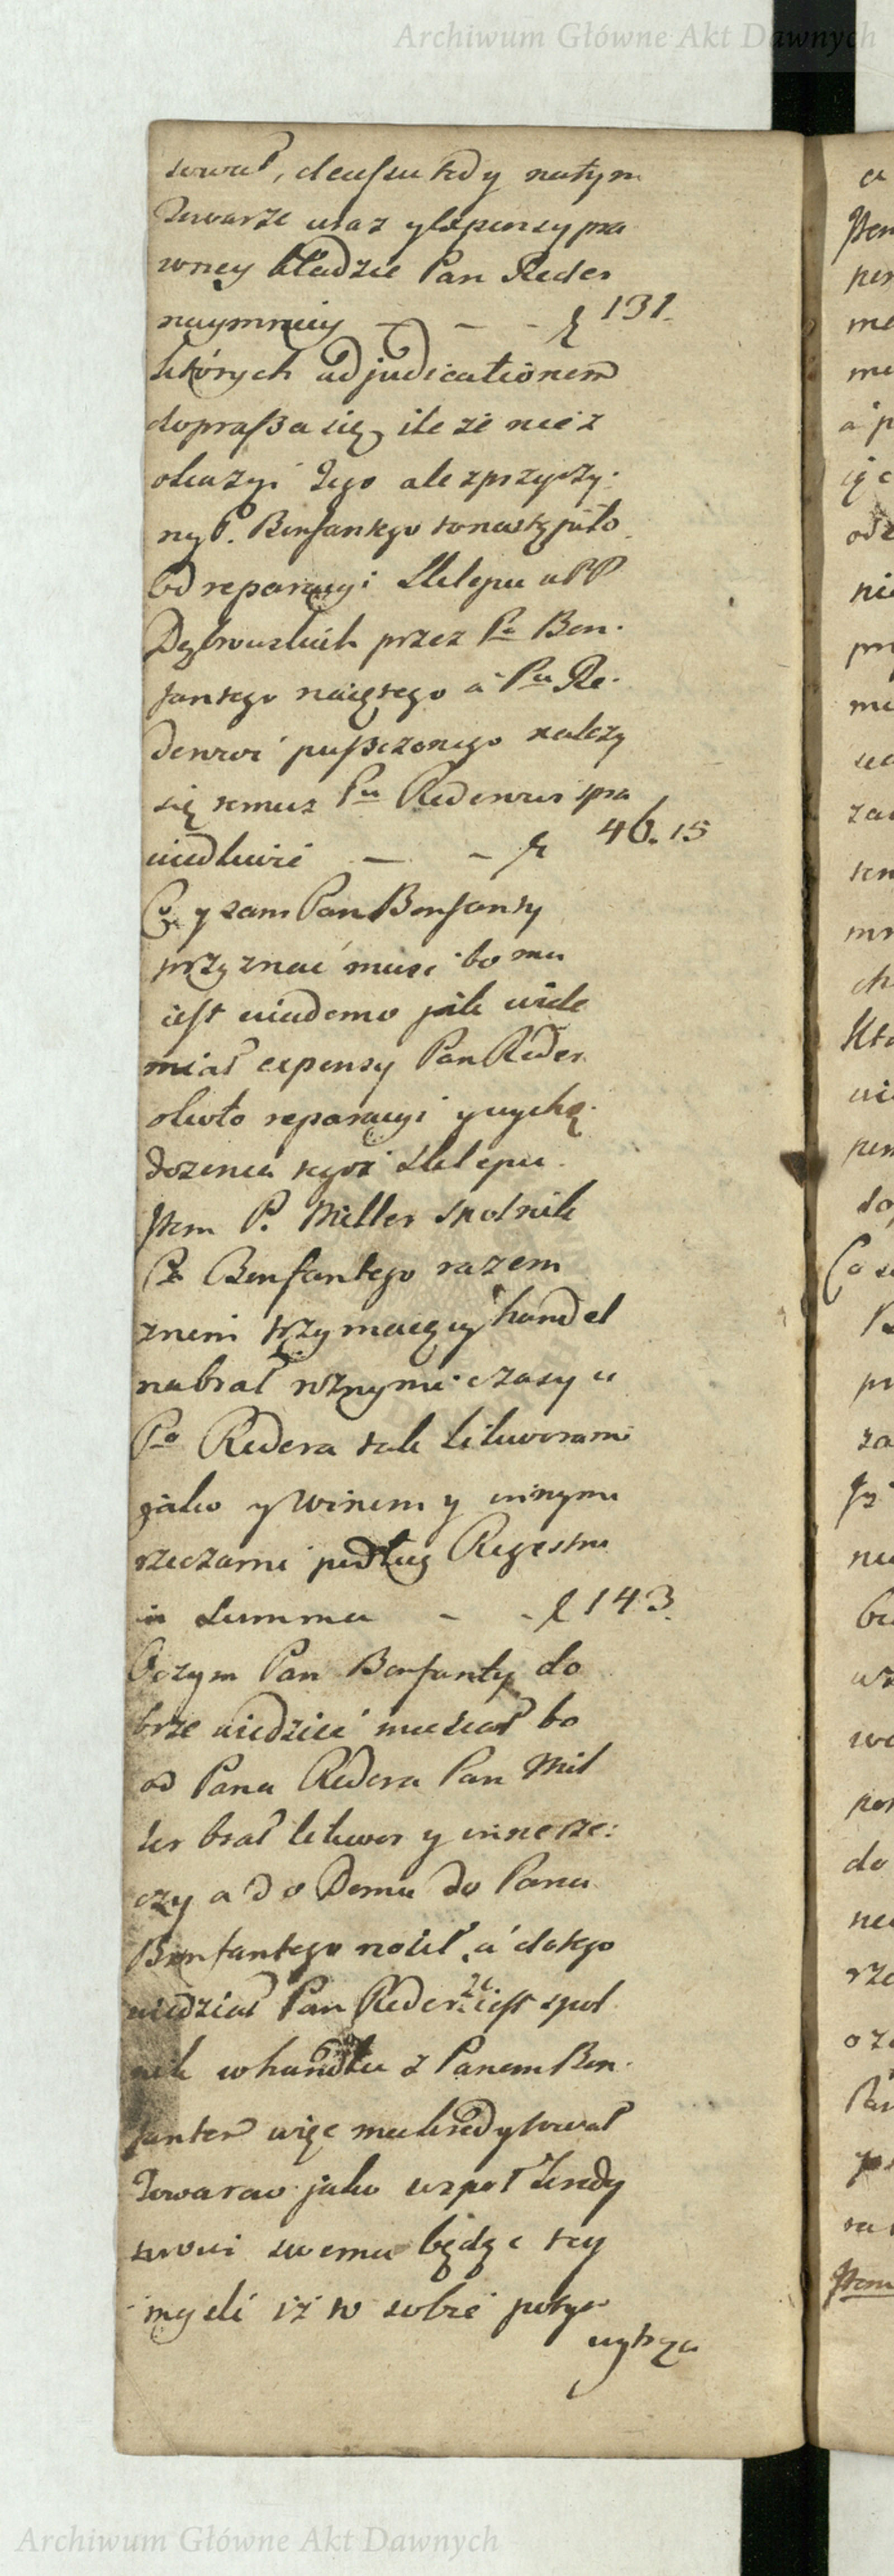 Archiwum Główne Akt Dawnych
sował, decessu tedy na tym
Towarze wraz y Expensy pra
wney kładzie Pan Reder
naymniey - - - ł 131.
których adjudicationem
doprasza się, ile że nie z
okazyi tego ale z przyczy:
ny P. Benfantego to nastąpiło
Od reparacyi Sklepu u PP
Dąbrowskich przez Pa Ben:
fantego naiętego a Pu Re:
derowi puszczonego należy
się temuz Pu Rederowi spra
wiedliwie - - ł 46.15
Co y sam Pan Benfanty
przyznać musi bo mu
iest wiadomo jak wiele
miał expensy Pan Reder
około reparacyi y wychę:
dożenia tegoż Sklepu.
Item P. Miller Spolnik
Pa Benfantego razem
z nim trzymaiący handel
nabrał rożnymi czasy u
Pa Redera tak likworami
jako y Winem y innymi
rzeczami podług Regestru
in Summa - - ł 143.
O czym Pan Benfanty do
brze wiedzieć musiał bo
od Pana Redera Pan Mil
ler brał likwor y inne rze:
czy a do Domu do Pana
Benfantego nosił, a do tego
wiedział Pan Reder że iest spol
nik w handlu z Panem Ben:
fantem więc mu kredytował
Towarow jako wspoł Kredy
torowi swemu będąc tey
myśli iż to sobie potym
wytrąca
Archiwum Główne Akt Dawnych